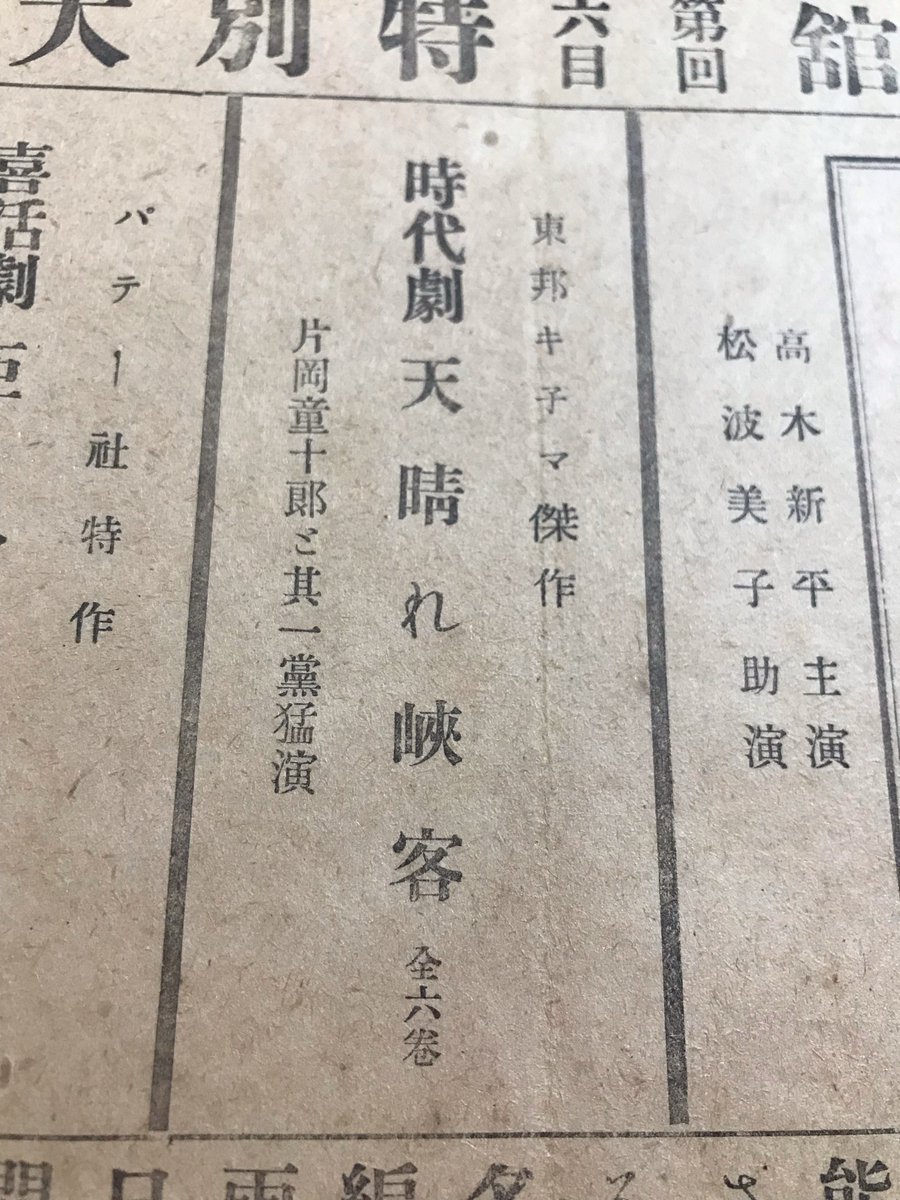 舘第六回目特別大
高木新平主演
松波美子助演
東邦キ子マ傑作
時代劇 天晴れ峽客 全六卷
片岡童十郎と其一黨猛演
パテー社特作
喜活劇